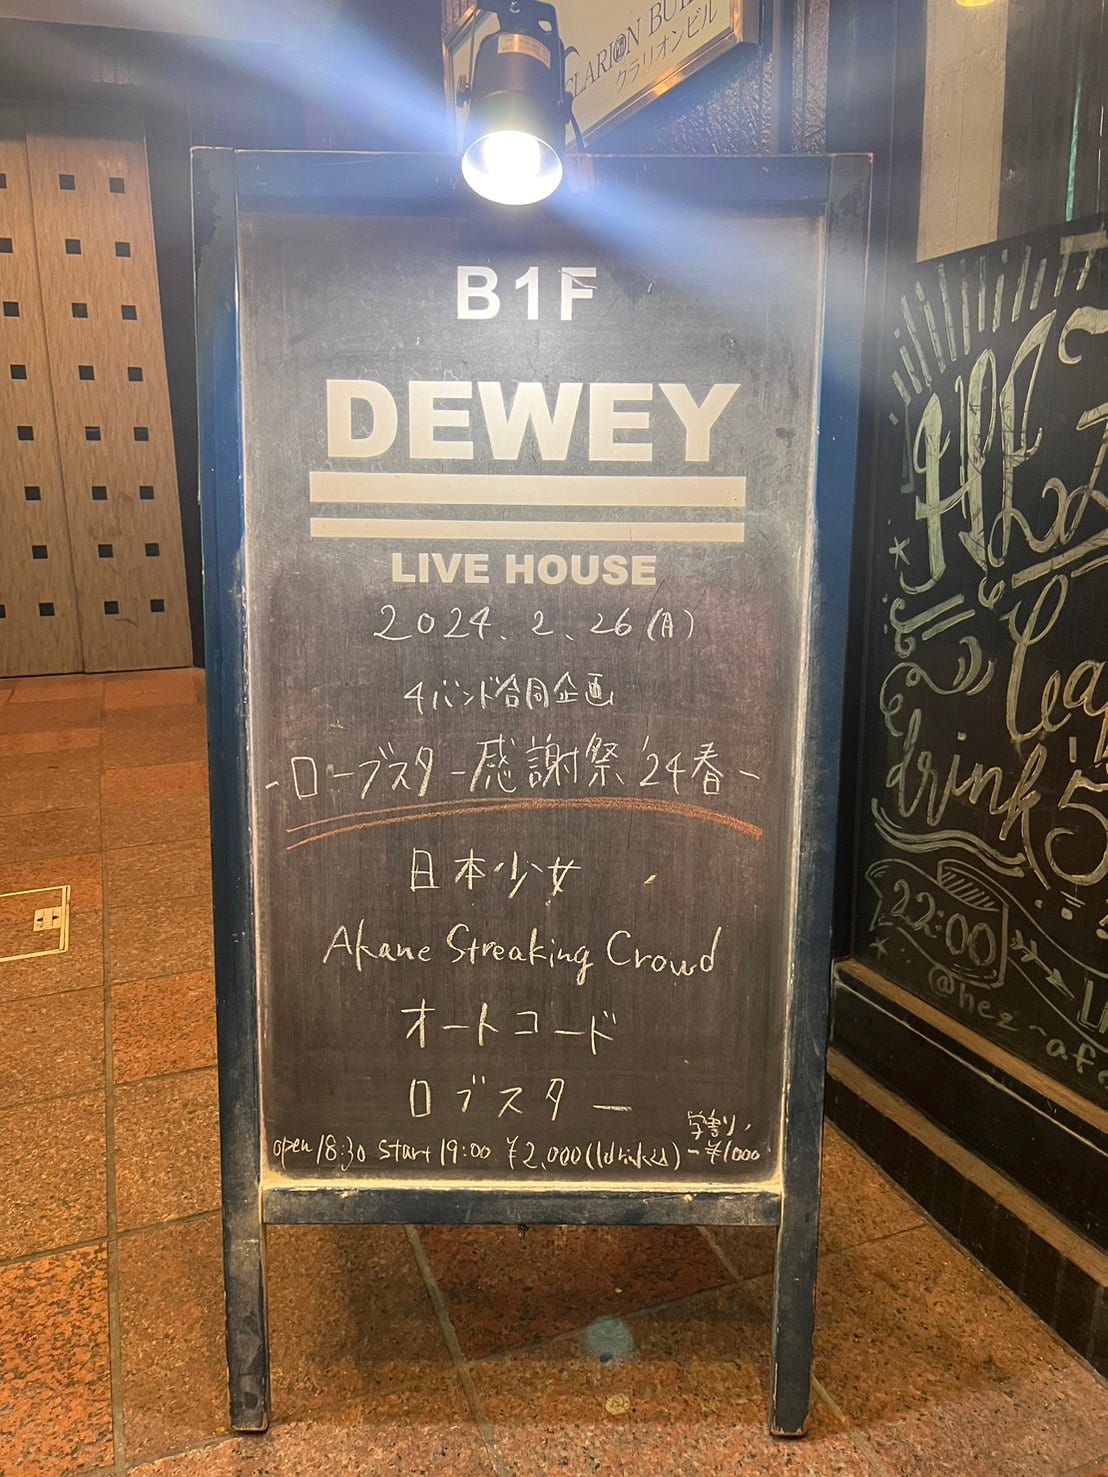 CLARION BU
クラリオンビル
B1F
DEWEY
LIVE HOUSE
2024.2.26(月)
4バンド合同企画
-ロブスター感謝祭'24春-
日本少女
Akane Streaking Crowd
オートコード
ロブスター
学割り、
open 18:30 start 19:00 ¥2,000(1drink込) -¥1000
drink 5
22:00